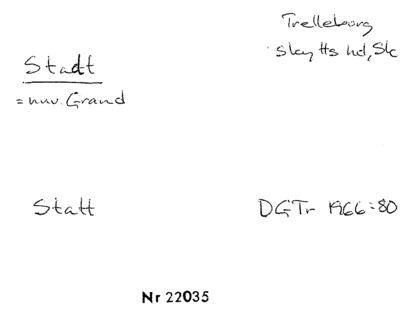 Trelleborg
Skytts hd, Sk
Stadt
= nuv. Grand
Statt
DGTr 1966:80
Nr 22035